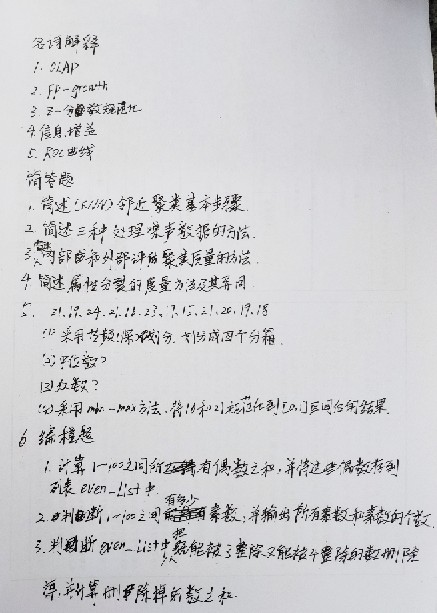 名词解释
1. OLAP
2. FP-growth
3. Z-分数规范化
4. 信息增益
5. ROC曲线
简答题
1. 简述(KNN)邻近聚类基本步骤
2. 简述三种处理噪声数据的方法.
3. 内部和外部评价聚类质量的方法.
4 简述属性分裂的度量方法及其异同
5. 21.19.24.21.18.23.9.15.21.20.19.18
(1) 采用等频(深)划分, 划分成四个分箱
(2) 中位数?
(3) 众数?
(4) 采用min-max方法, 将18和21规范化到[0,1]区间的结果.
6 编程题
1. 计算1-100之间所有偶数之和, 并将这些偶数存到
列表even_list中
2. 判断1-100之间有多少素数, 并输出所有素数和素数的个数.
3. 判断even_list中把能被3整除又能被4整除的数删除
掉, 并计算删除掉的数之和.